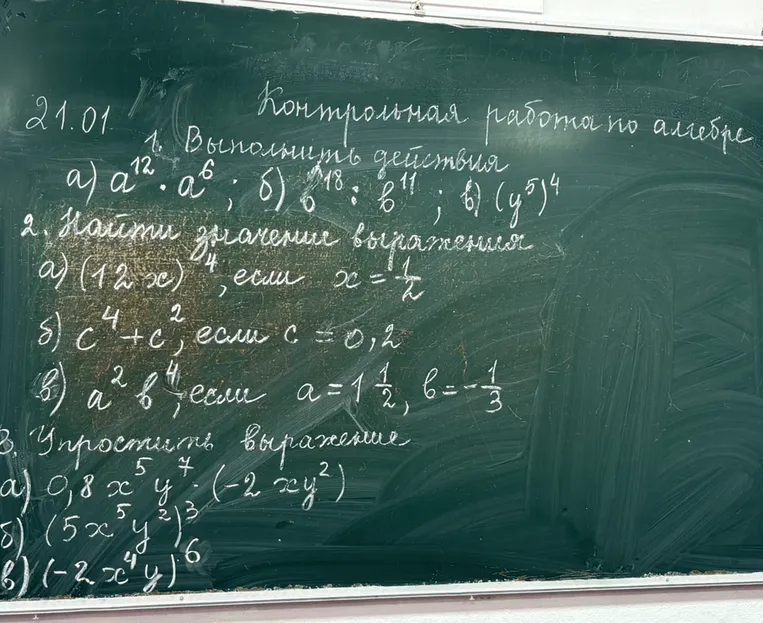 21.01. Контрольная работа по алгебре
1. Выполнить действия
а) a¹² · a⁶ ; б) b¹⁸ : b¹¹ ; в) (y⁵)⁴
2. Найти значение выражения
а) (12x)⁴, если x = 1/2
б) c⁴ + c², если c = 0,2
в) a² b⁴, если a = 1 1/2, b = -1/3
3. Упростить выражение
а) 0,8 x⁵ y⁷ · (-2xy²)
б) (5x⁵y²)³
в) (-2x⁴y)⁶